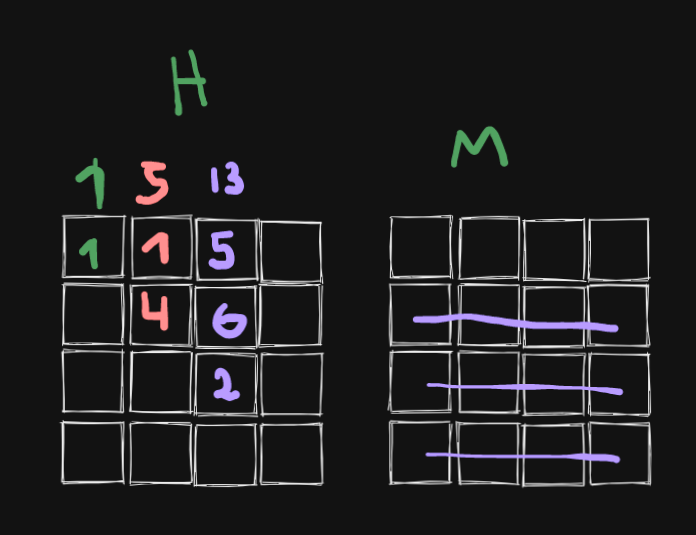 H
M
1 5 13
1 1 5
4 6
2